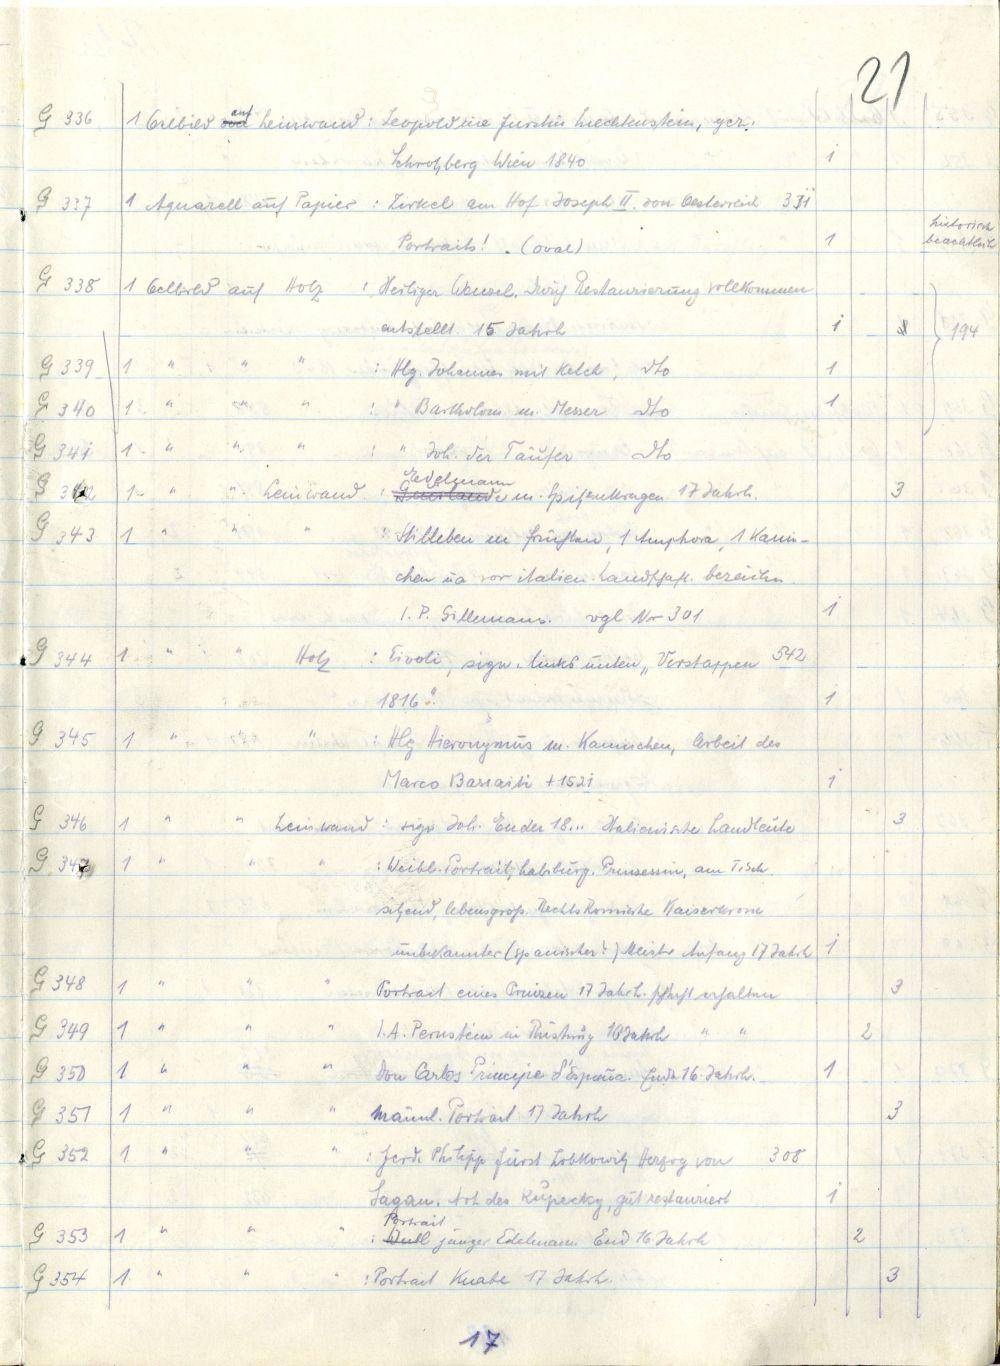 21
G 336 1 Oelbild auf Leinwand : Leopoldine Fürstin Liechtenstein, gez.
Schrotzberg Wien 1840 1
G 337 1 Aquarell auf Papier : Zirkel am Hof Joseph II. von Oesterreich 331
Portraits! (oval) 1 historisch beachtlich
G 338 1 Oelbild auf Holz : Heiliger Wenzel. Durch Restaurierung vollkommen
entstellt 15 Jahrh 1 194
G 339 1 " " " : Hlg. Johannes mit Kelch, Dto 1
G 340 1 " " " : " Bartholom m. Messer Dto 1
G 341 1 " " " : " Joh. der Täufer Dto
G 342 1 " " Leinwand : Edelmann m. Spitzenkragen 17 Jahrh. 3
G 343 1 " " " : Stilleben m Früchten, 1 Amphora, 1 Kanin-
chen ua vor italien. Landschaft. bezeichn.
I. P. Gillemans. vgl Nr 301 1
G 344 1 " " Holz : Tivoli, sign. links unten „Verstappen 542
1816" 1
G 345 1 " " " : Hlg Hieronymus m. Kaninchen, Arbeit des
Marco Basaiti +1521 1
G 346 1 " " Leinwand : sign Joh. Ender 18... Italienische Landleute 3
G 347 1 " " " : Weibl. Portrait, habsburg. Prinzessin, am Tisch
sitzend, lebensgross. Rechts Komische Kaiserkrone
unbekannter (spanischer?) Meister Anfang 17 Jahrh 1
G 348 1 " " " Portrait eines Prinzen 17 Jahrh. schlecht erhalten 3
G 349 1 " " " I. A. Pernstein in Rüstung 16 Jahrh " " 2
G 350 1 " " " Don Carlos Principe d'España. Ende 16. Jahrh. 1
G 351 1 " " " Männl. Portrait 17 Jahrh 3
G 352 1 " " " : Ferd. Philipp Fürst Lobkowitz Herzog von 308
Sagan. Art des Kupecky, gut restauriert 1
G 353 1 " " " : Portrait junger Edelmann End 16 Jahrh 2
G 354 1 " " " : Portrait Knabe 17 Jahrh. 3
17